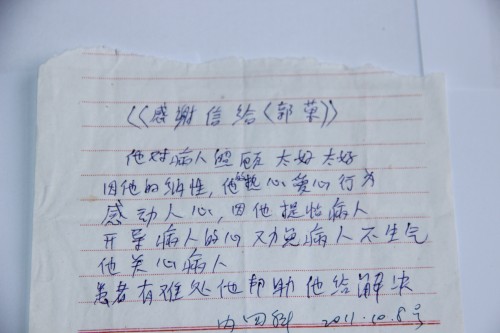 《感谢信给〈郭菊〉》
他对病人照顾太好太好
因他的耐性,他的热心爱心行为
感动人心,因他提怡病人
开导病人的心劝免病人不生气
他关心病人
患者有难处他帮助他给解决
内四科 2011.10.8号